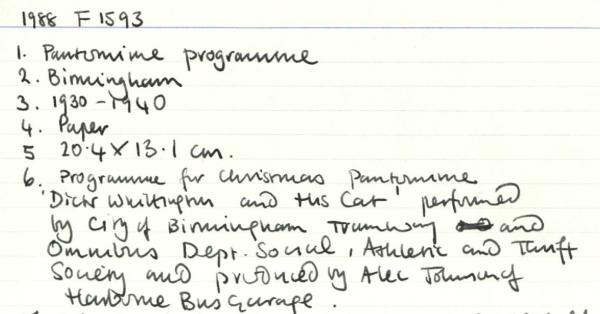 1988 F1593
1. Pantomime programme
2. Birmingham
3. 1930 - 1940
4. Paper
5 20.4 X 13.1 cm.
6. Programme for Christmas Pantomime
'Dick Whittington and His Cat' performed
by City of Birmingham Tramway and
Omnibus Dept. Social, Athletic and Thrift
Society and produced by Alec Johnson of
Harborne Bus Garage.